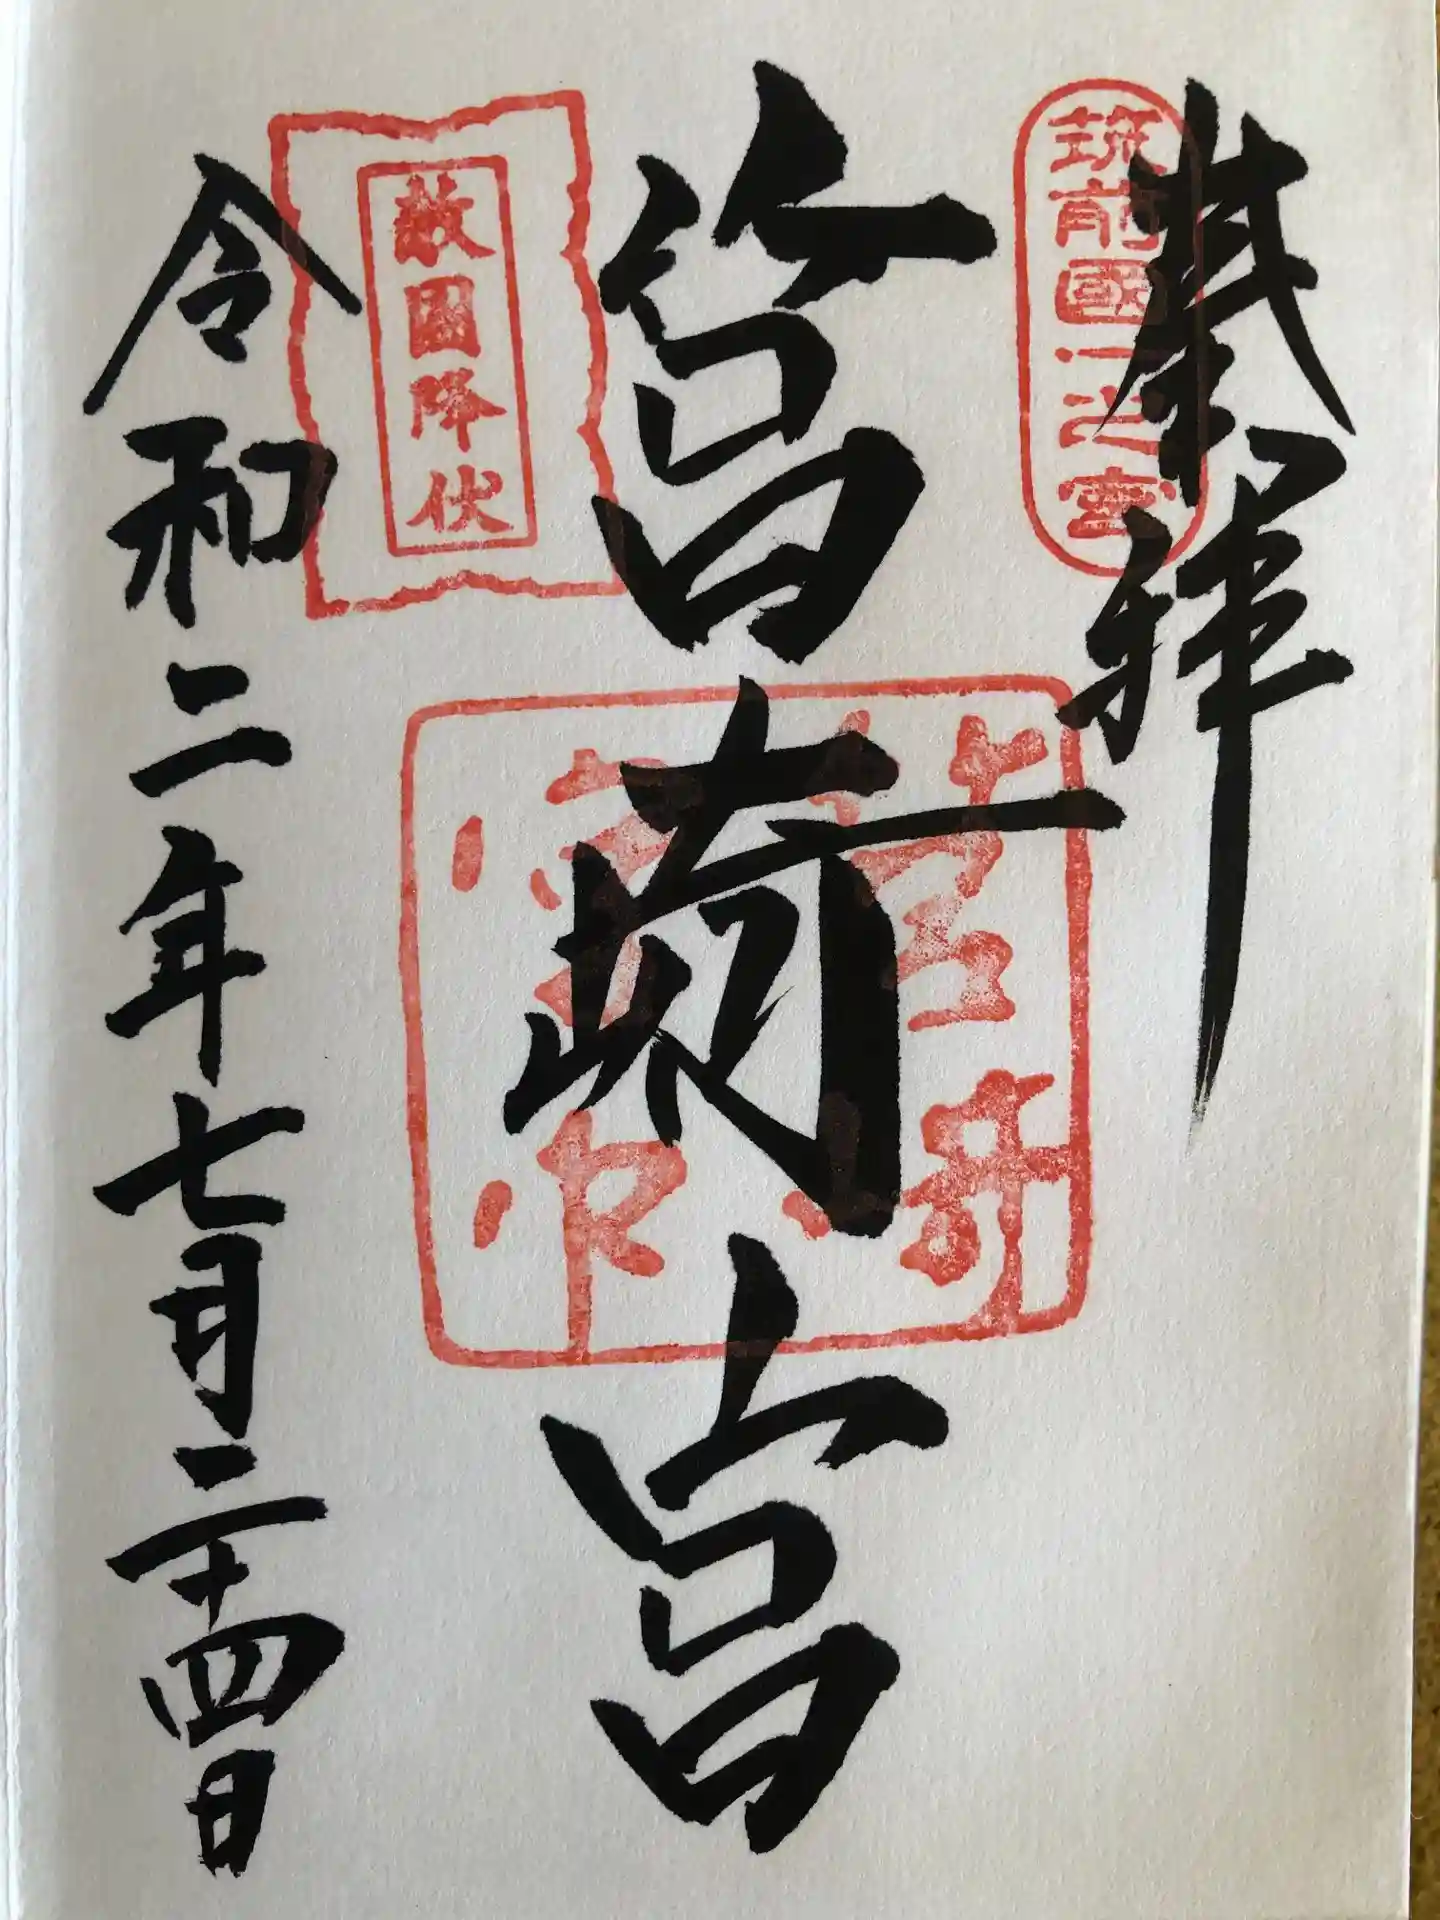 奉拝
筑前國一之宮
筥崎宮
敵國降伏
令和二年七月二十四日